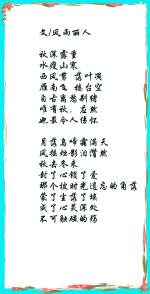 文/风雨丽人
秋深露重
水瘦山寒
西风剪 落叶凋
雁南飞 楼台空
自古离愁别绪
唯有秋，忌然
也最令人伤怀
月落乌啼霜满天
风摇烛影泪潸然
秋去冬来
封了心锁了爱
那个被时光遗忘的角落
蒙了尘落了埃
成了心灵深处
不可触碰的殇